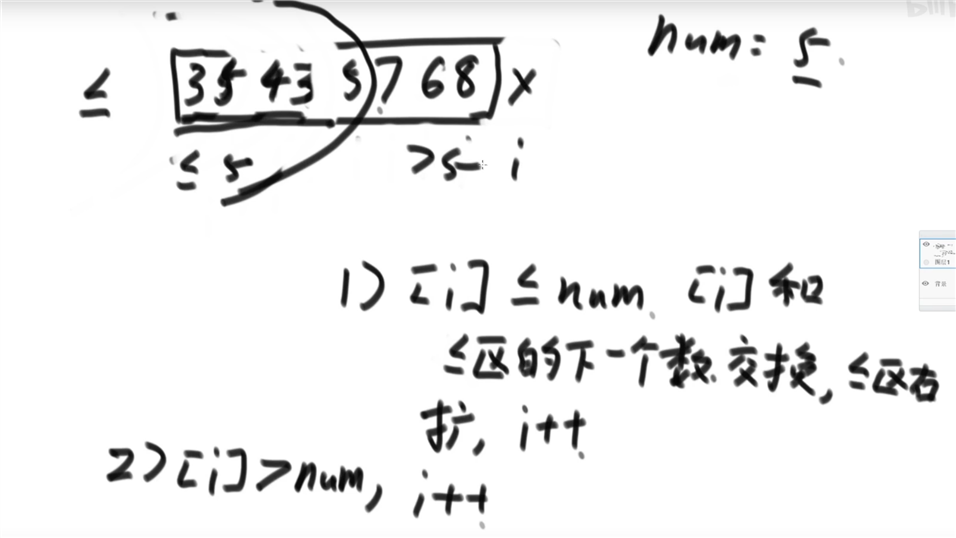 num = 5
≤ [35 43 5)7 68] x
≤ 5 >5 i
1) [i] ≤ num [i] 和
≤区的下一个数交换, ≤区右
扩, i++
2) [i] > num, i++
图层1
背景